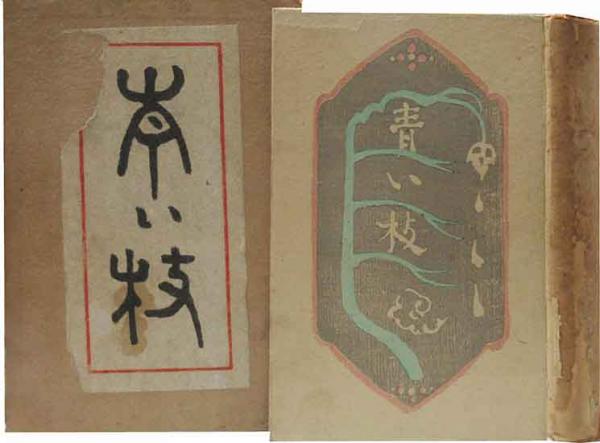 青い枝
青い枝